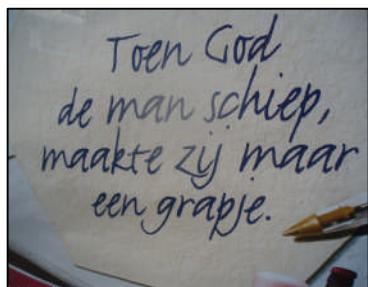 Toen God
de man schiep,
maakte zij maar
een grapje.